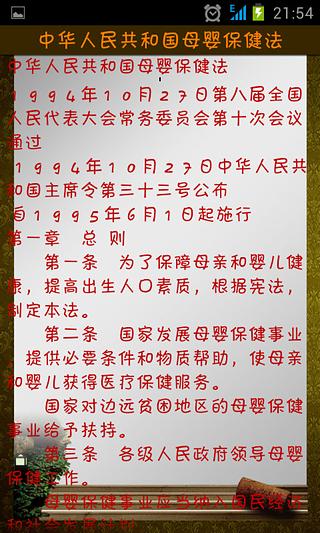 21:54
中华人民共和国母婴保健法
中华人民共和国母婴保健法
１９９４年１０月２７日第八届全国
人民代表大会常务委员会第十次会议
通过
１９９４年１０月２７日中华人民共
和国主席令第三十三号公布
自１９９５年６月１日起施行
第一章　总 则
第一条　为了保障母亲和婴儿健
康，提高出生人口素质，根据宪法，
制定本法。
第二条　国家发展母婴保健事业
，提供必要条件和物质帮助，使母亲
和婴儿获得医疗保健服务。
国家对边远贫困地区的母婴保健
事业给予扶持。
第三条　各级人民政府领导母婴
保健工作。
母婴保健事业应当纳入国民经济
和社会发展计划